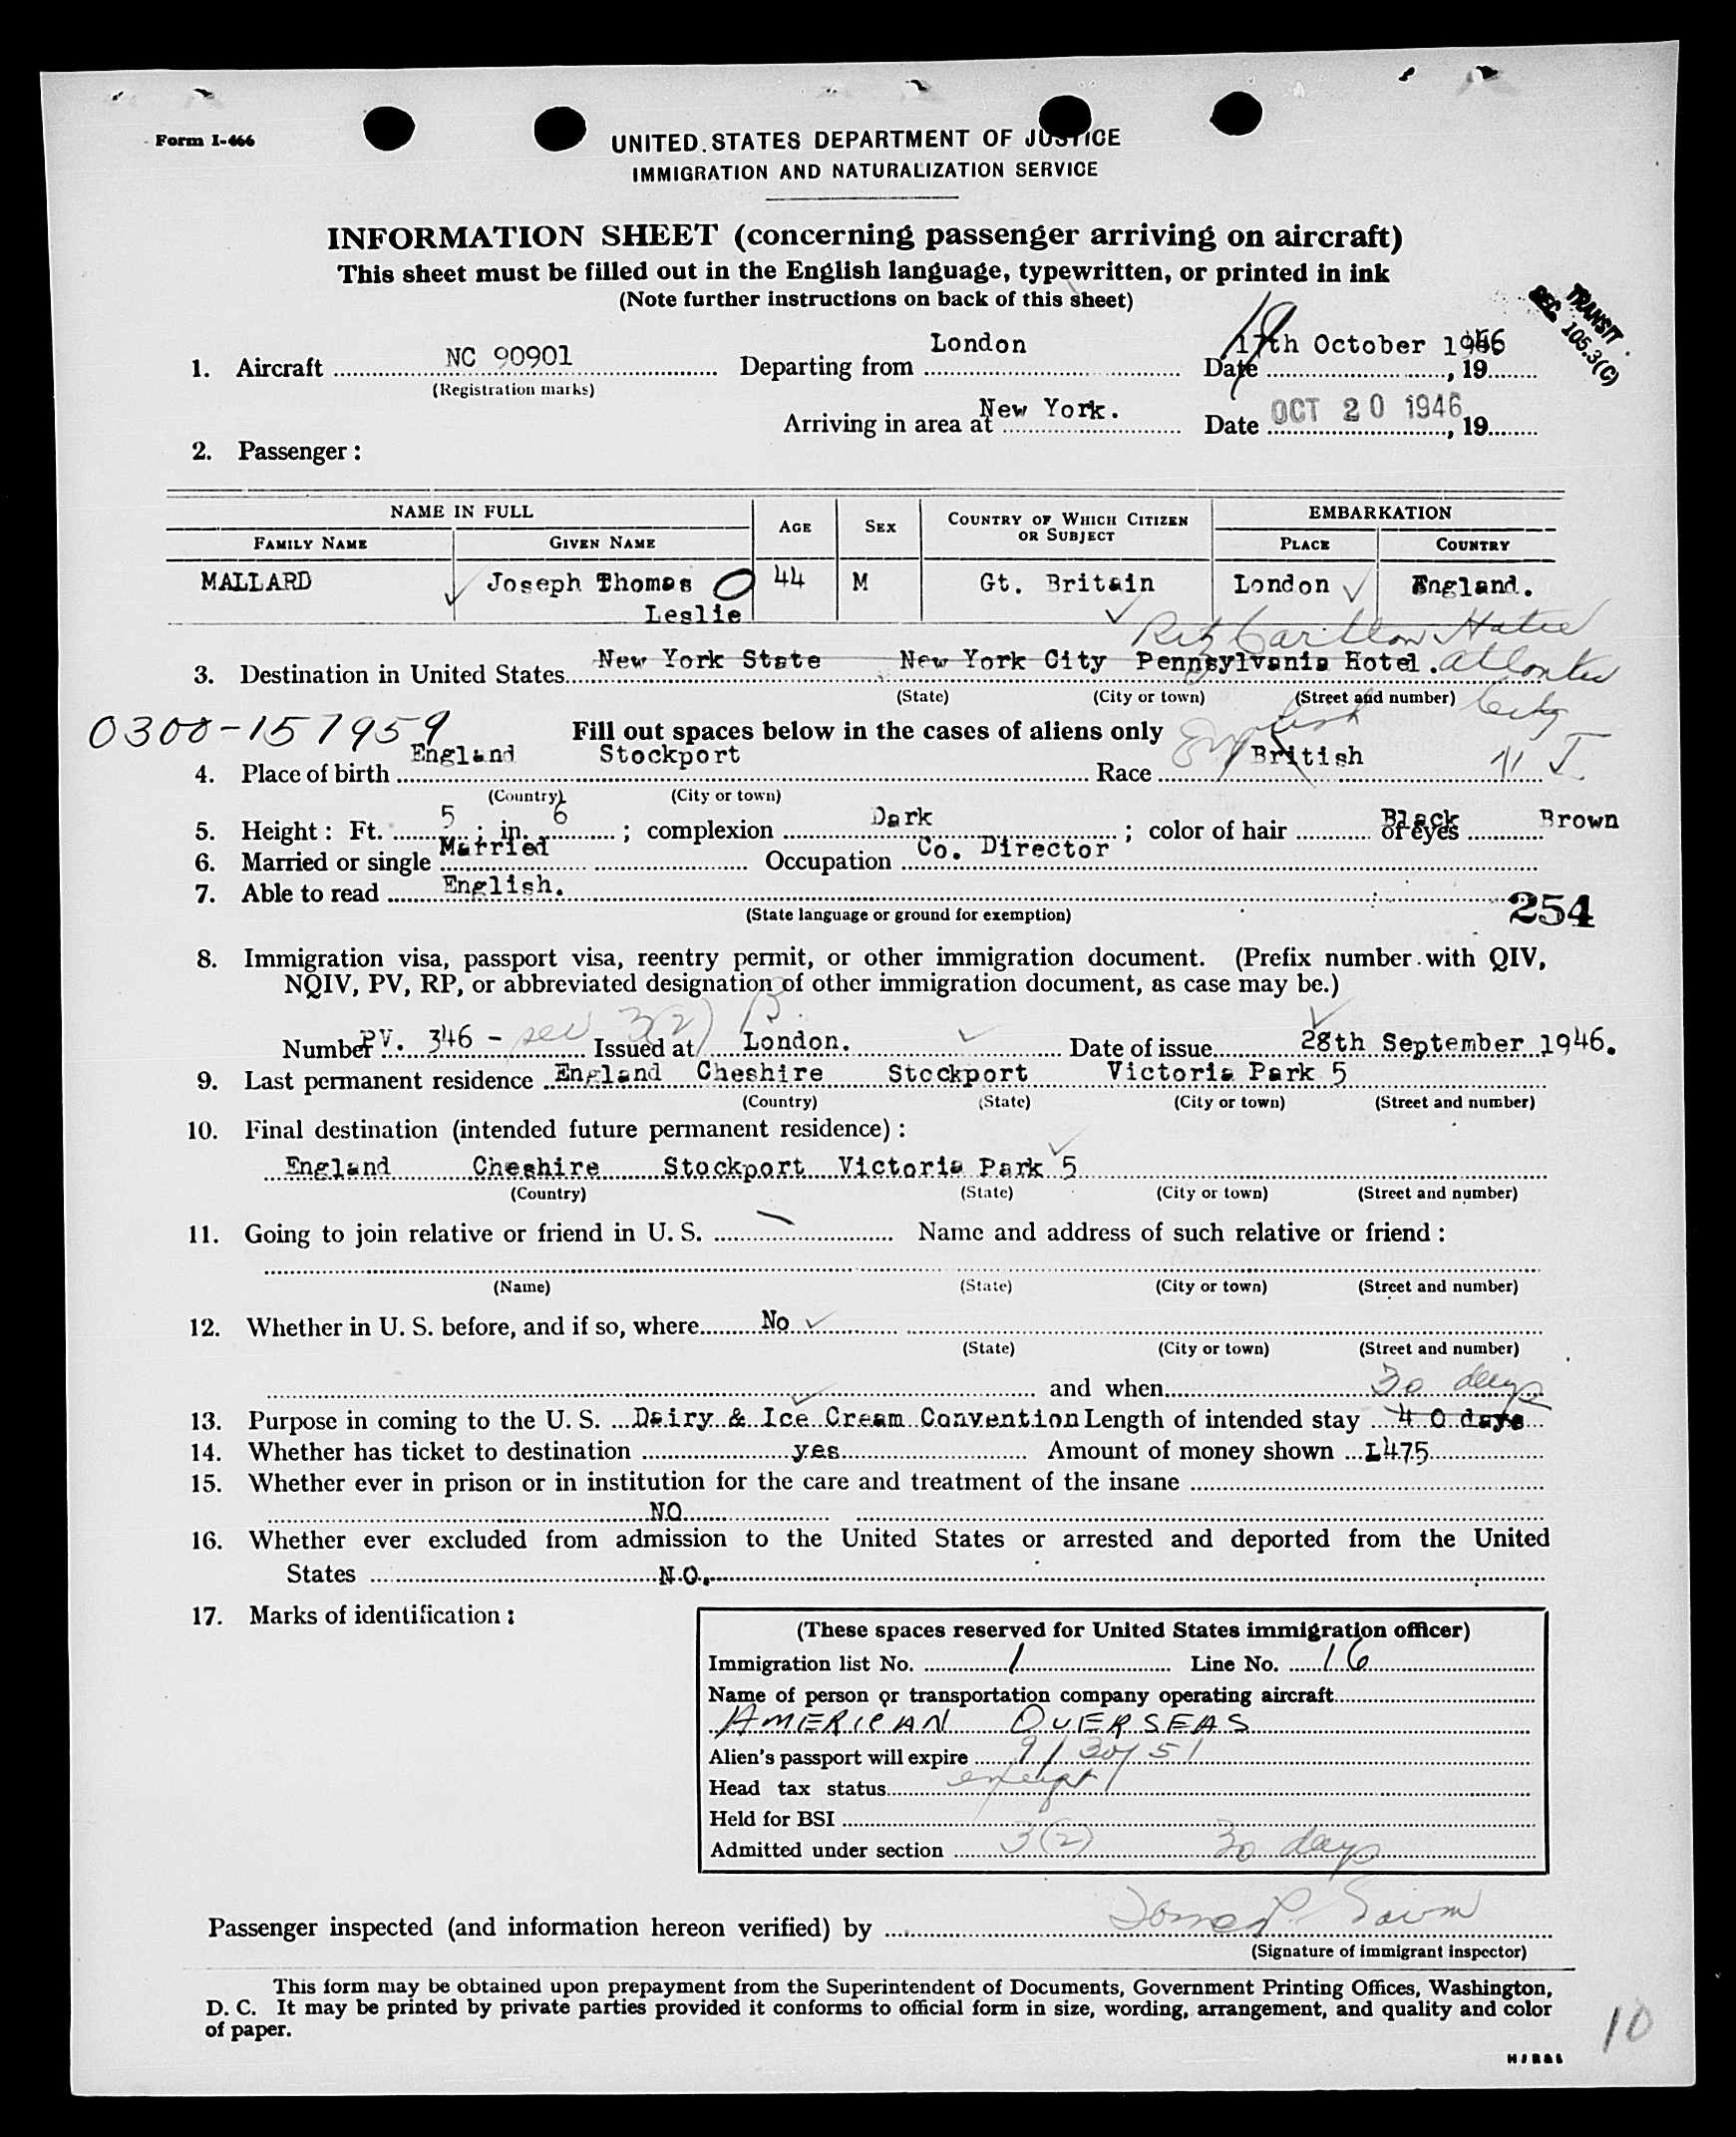 Form I-466
UNITED STATES DEPARTMENT OF JUSTICE
IMMIGRATION AND NATURALIZATION SERVICE
INFORMATION SHEET (concerning passenger arriving on aircraft)
This sheet must be filled out in the English language, typewritten, or printed in ink
(Note further instructions on back of this sheet)
TRANSIT
SEC. 105.3(C)
1. Aircraft NC 90901 Departing from London Date 17th October 1946, 19
19
(Registration marks)
Arriving in area at New York. Date OCT 20 1946, 19
2. Passenger:
NAME IN FULL AGE SEX COUNTRY OF WHICH CITIZEN OR SUBJECT EMBARKATION
FAMILY NAME GIVEN NAME PLACE COUNTRY
MALLARD Joseph Thomas 44 M Gt. Britain London England.
Leslie
Ritz Carlton Hotel
3. Destination in United States New York State New York City Pennsylvania Hotel. Atlantic
(State) (City or town) (Street and number) City
0300-157959 Fill out spaces below in the cases of aliens only English
4. Place of birth England Stockport Race British
(Country) (City or town)
5. Height: Ft. 5; in. 6; complexion Dark; color of hair Black of eyes Brown
6. Married or single Married Occupation Co. Director
7. Able to read English.
(State language or ground for exemption) 254
8. Immigration visa, passport visa, reentry permit, or other immigration document. (Prefix number with QIV,
NQIV, PV, RP, or abbreviated designation of other immigration document, as case may be.)
Number PV. 346 - sec 3(2) B. Issued at London. Date of issue 28th September 1946.
9. Last permanent residence England Cheshire Stockport Victoria Park 5
(Country) (State) (City or town) (Street and number)
10. Final destination (intended future permanent residence):
England Cheshire Stockport Victoria Park 5
(Country) (State) (City or town) (Street and number)
11. Going to join relative or friend in U. S. Name and address of such relative or friend:
(Name) (State) (City or town) (Street and number)
12. Whether in U. S. before, and if so, where No
(State) (City or town) (Street and number)
and when 30 days
13. Purpose in coming to the U. S. Dairy & Ice Cream Convention Length of intended stay 40 days
14. Whether has ticket to destination yes Amount of money shown £475
15. Whether ever in prison or in institution for the care and treatment of the insane
NO
16. Whether ever excluded from admission to the United States or arrested and deported from the United
States NO.
17. Marks of identification:
(These spaces reserved for United States immigration officer)
Immigration list No. 1 Line No. 16
Name of person or transportation company operating aircraft
AMERICAN OVERSEAS
Alien's passport will expire 9/30/51
Head tax status exempt
Held for BSI
Admitted under section 3(2) 30 days
Passenger inspected (and information hereon verified) by
(Signature of immigrant inspector)
This form may be obtained upon prepayment from the Superintendent of Documents, Government Printing Offices, Washington,
D. C. It may be printed by private parties provided it conforms to official form in size, wording, arrangement, and quality and color
of paper.
10